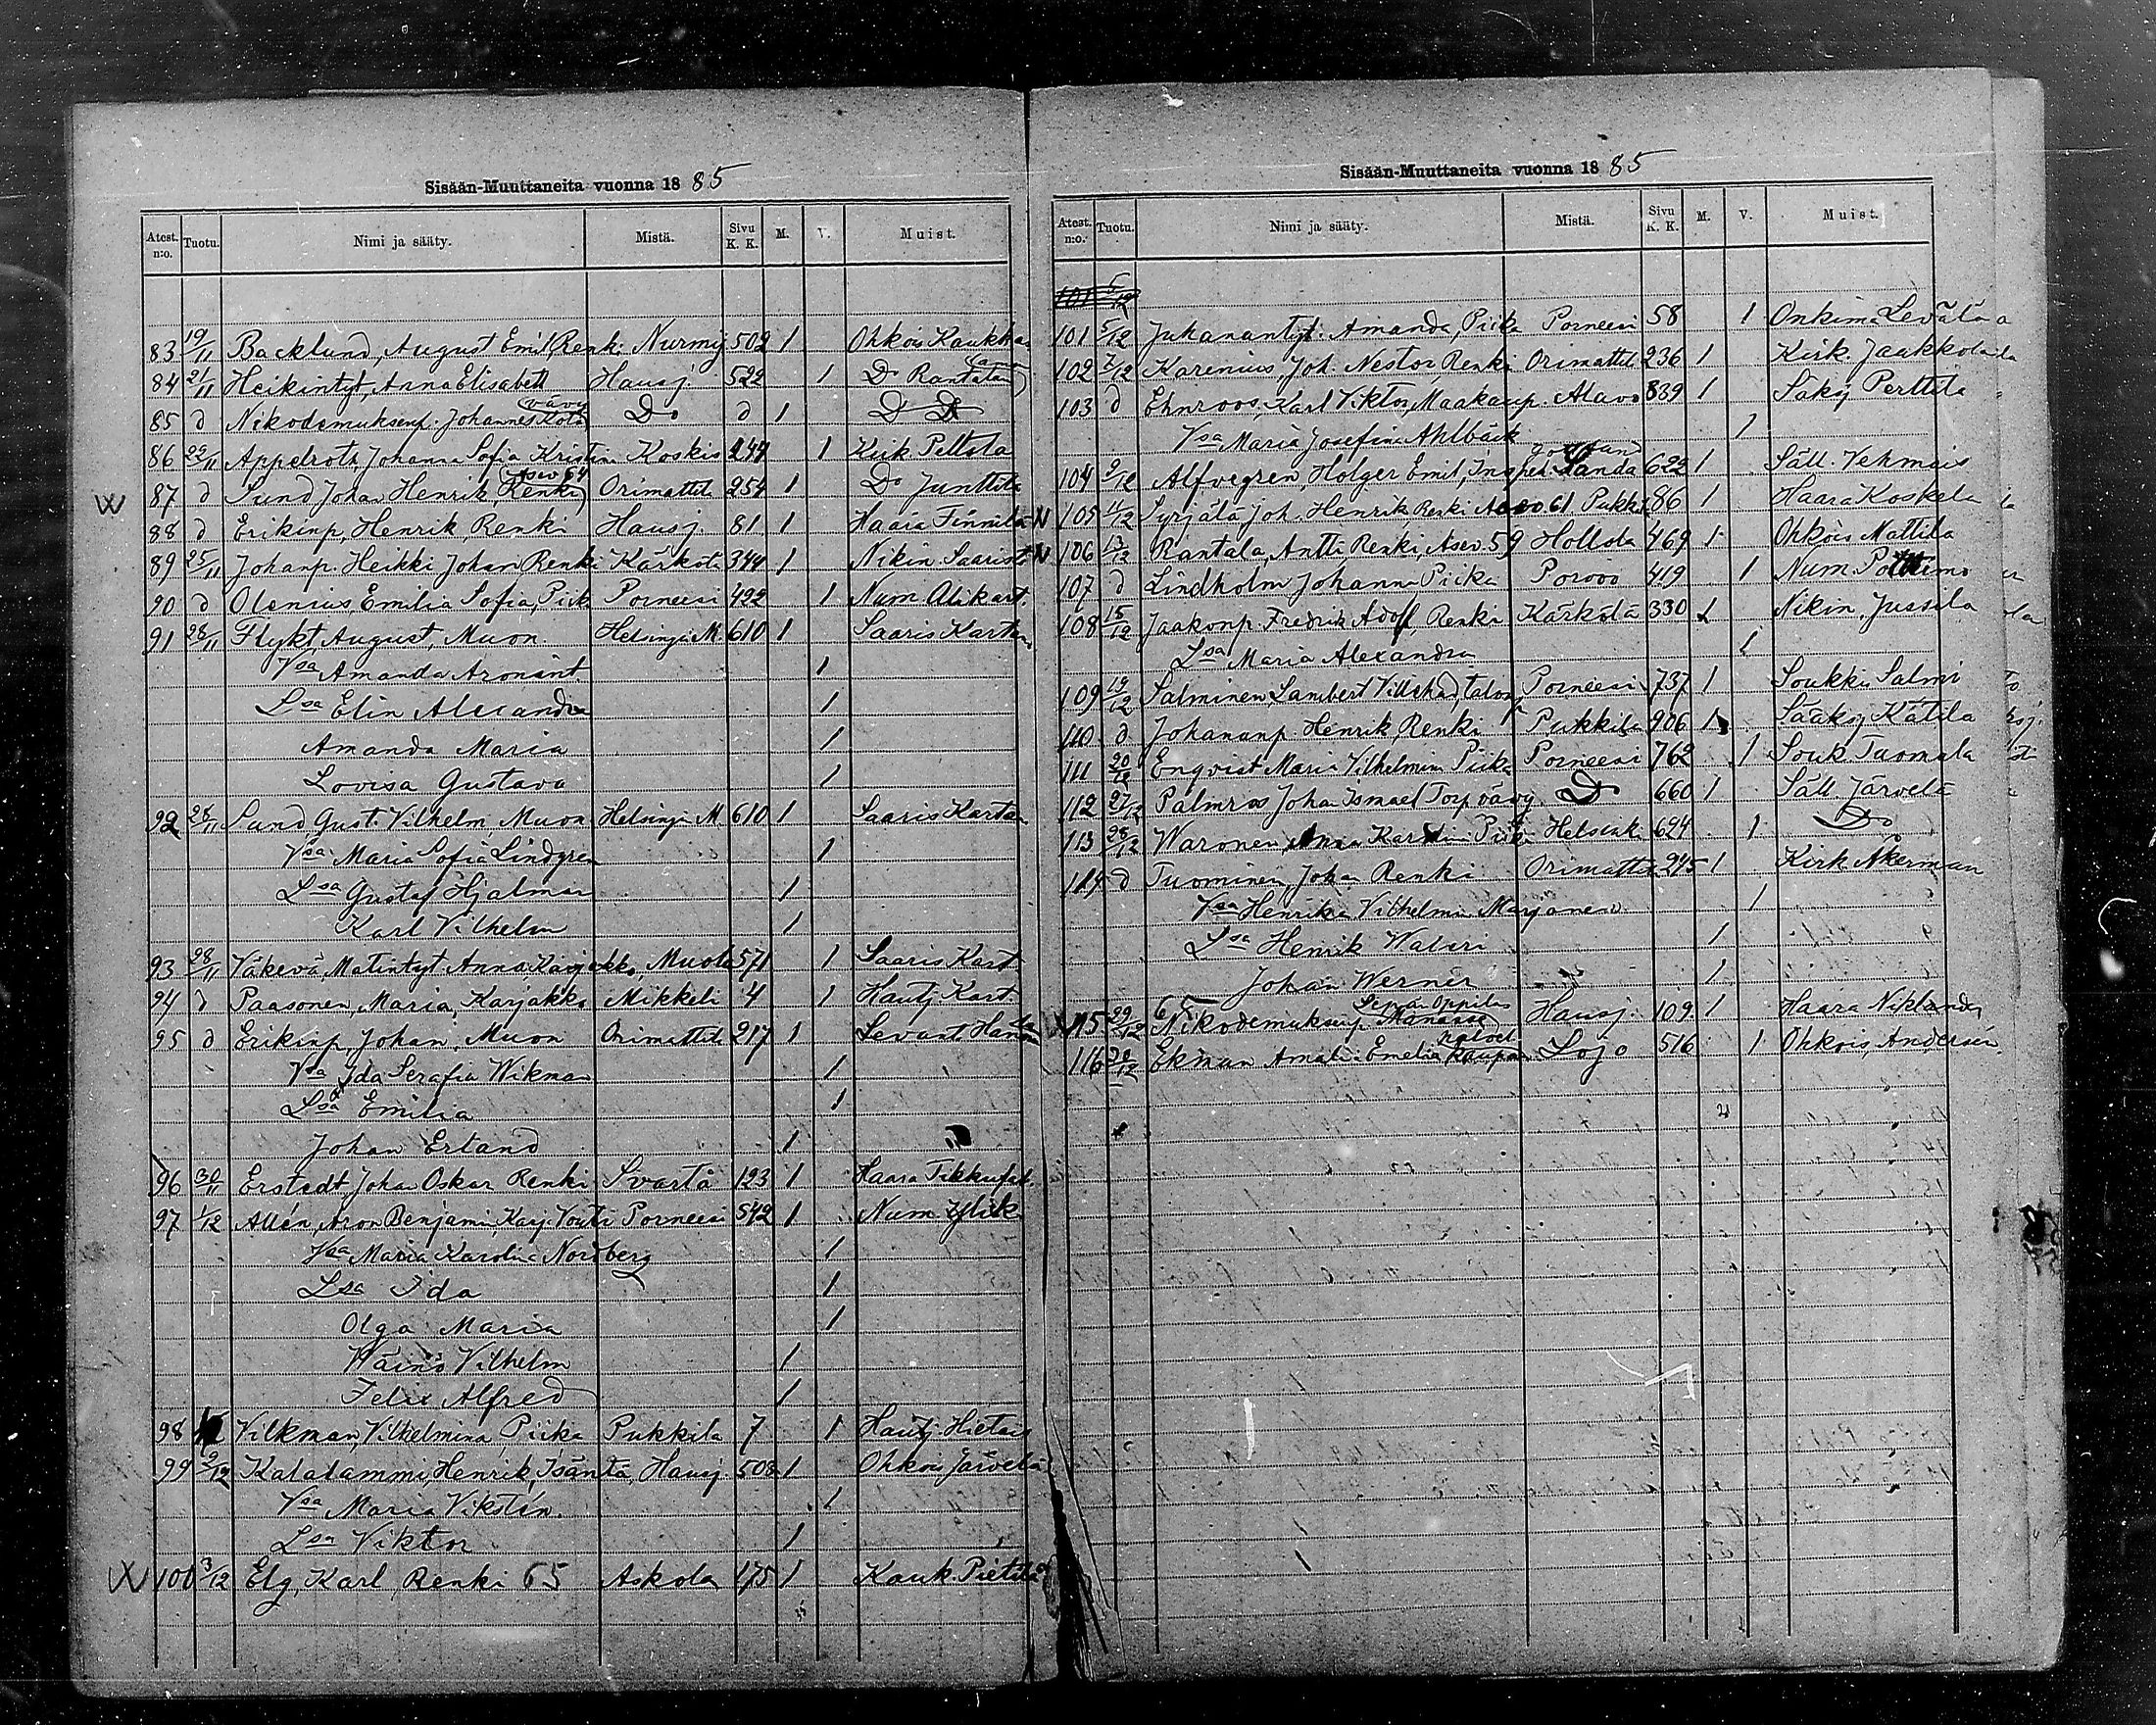 Sisään-Muuttaneita vuonna 1885
Atest. n:o. Tuotu. Nimi ja sääty. Mistä. Sivu K. K. M. V. Muist.
83 19/11 Backlund, August Emil, Renki Nurmij 502 1 Ohkois Kaukka
84 21/11 Heikintyt, Anna Elisabett Hausj. 522 1 Do Rantala
85 d Nikodemuksenp. Johannes vävy Do d 1 D
86 22/11 Appelroth, Johanna Sofia Kristina Koskis 244 1 Kirk Peltola
87 d Sund Johan Henrik Renki Asev 64 Orimattila 254 1 Do Junttila
88 d Erikinp, Henrik, Renki Hausj. 81 1 Haara Finnilä
89 25/11 Johanp. Heikki Johan Renki Kärkölä 344 1 Nikin Saaristo
90 d Olenius Emilia Sofia, Piik Porneesi 422 1 Num. Alikart.
91 28/11 Flykt, August, Muon. Helsingi M. 610 1 Saaris Kartan
Vsa Amanda Aronänt. 1
Lsa Elin Alexandra 1
Amanda Maria 1
Lovisa Gustava 1
92 28/11 Sund Gust. Vilhelm, Muon Helsingi M. 610 1 Saaris Kartan
Vsa Maria Sofia Lindgren 1
Lsa Gustaf Hjalmar 1
Karl Vilhelm 1
93 28/11 Väkevä, Matintyt Anna Karjakko, Muola 571 1 Saaris Kart
94 d Paasonen, Maria, Karjakko Mikkeli 4 1 Hautj Kart
95 d Erikinp, Johan, Muon Orimattila 217 1 Levant
Vsa Ida Serafia Wikman 1
Lsa Emilia 1
Johan Erland 1
96 30/11 Erstedt, Johan Oskar Renki Svartå 123 1 Haara
97 1/12 Allén, Aron Benjamin, Karj. Vouti Porneesi 542 1 Num. Ylik
Vsa Maria Karolin Nordberg 1
Lsa Ida 1
Olga Maria 1
Wäinö Vilhelm 1
Felix Alfred 1
98 Vilkman, Vilhelmina, Piika Pukkila 7 1 Hautj. Hietais
99 2/12 Kaladammi, Henrik, Isäntä, Hausj. 503 1 Ohkois Järvelä
Vsa Maria Vikstén. 1
Lsa Viktor 1
100 3/12 Elg, Karl, Renki 65 Askola 175 1 Kauk. Pietilä
Sisään-Muuttaneita vuonna 1885
Atest. n:o. Tuotu. Nimi ja sääty. Mistä. Sivu K. K. M. V. Muist.
101 5/12
101 5/12 Juhanantyt. Amanda, Piika Porneesi 58 1 Onkima Levälä
102 7/12 Karenius, Joh. Nestor, Renki Orimattil 236 1 Kirk. Jaakkola
103 d Ehnroos, Karl Viktor, Maakaup. Alavo 839 1 Säkj Perttila
Vsa Maria Josefina Ahlbäck 1
104 9/12 Alfvegren, Holger Emil, Insper. Gottland 622 1 Säll. Vehmais
105 11/12 Syrjälä Joh. Henrik, Renki Asev 61 Pukkil 86 1 Haara Koskela
106 13/12 Rantala, Antti Renki, Asev. 59 Hollola 469 1 Ohkois Mattila
107 d Lindholm Johanna Piika Porvoo 419 1 Num.
108 15/12 Jaakonp. Fredrik Adolf, Renki Kärkölä 330 1 Nikin. Jussila
Lsa Maria Alexandra 1
109 19/12 Salminen, Lambert Villehad, talon Porneesi 737 1 Soukki Salmi
110 d Johananp. Henrik, Renki Pukkila 906 1 Sääksj Kätilä
111 20/12 Enqvist Maria Vilhelmin Piika Porneesi 762 1 Souk Tuomala
112 27/12 Palmros Johan Ismael Torp vävy Do 660 1 Säll. Järvelä
113 28/12 Waronen, Anna Karolin Piik Helsink 624 1 Do
114 d Tuominen, Johan Renki Orimattila 245 1 Kirk Åkerman
Vsa Henrika Vilhelmin Marjanen 1
Lsa Henrik Walari 1
Johan Werner 1
115 29/12 65 Nikodemuksenp. Manasse Sepän Oppilas Hausj. 109 1 Haara Niklander
116 30/12 Ekman Amali Emelia Kaupan palvel Lojo 516 1 Ohkois, Andersén.